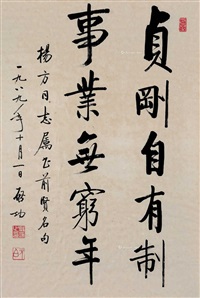 貞剛自有制
事業無窮年
楊方同志属正前賢名句
一九八九年十月一日啟功